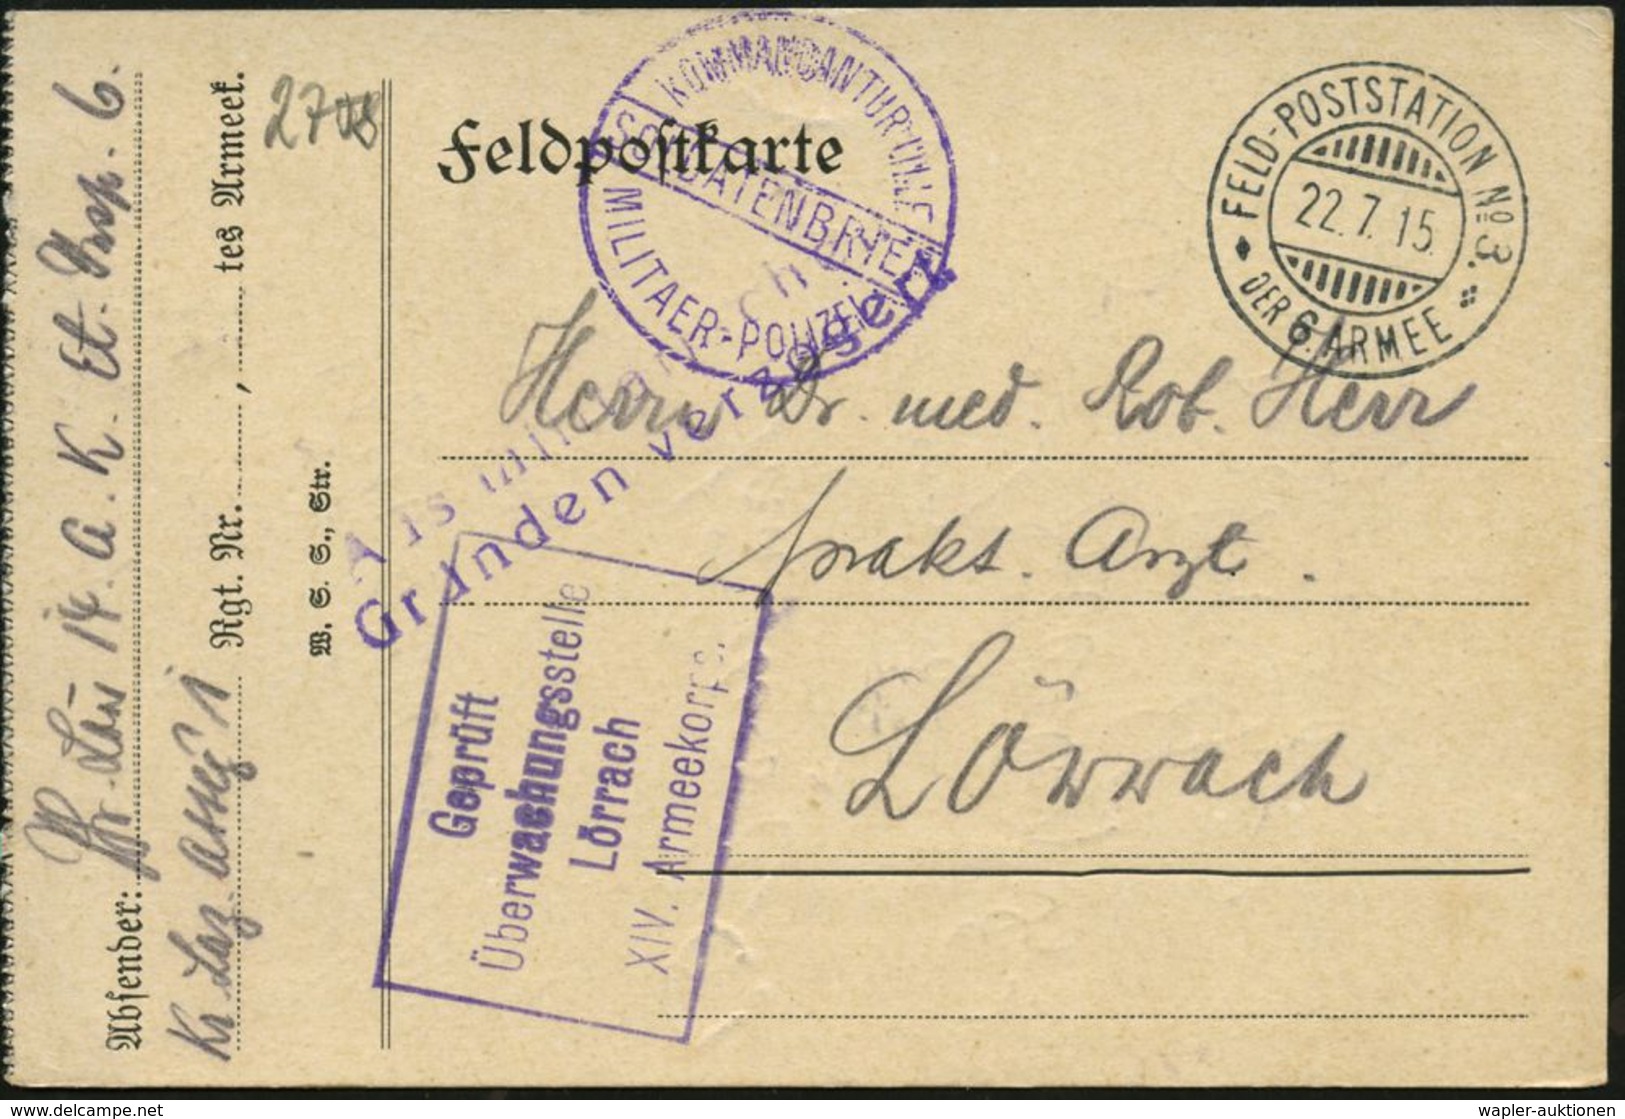 Feldpostkarte
KOMMANDANTUR LILLE
SOLDATENBRIEF
MILITAER-POLIZEI
FELD-POSTSTATION No 3.
22.7.15.
DER 6. ARMEE
Gründen verzögert
Herrn Dr. med. Rob. Herr
prakt. Arzt.
Lörrach
Geprüft
Überwachungsstelle
Lörrach
XIV. Armeekorps.
Absender:
14. A. K. Et. Insp. 6.
Kr Laz.
Rgt. Nr. , tes Armeek.
W. S. S., Str.
delcampe.net
wapler-auktionen